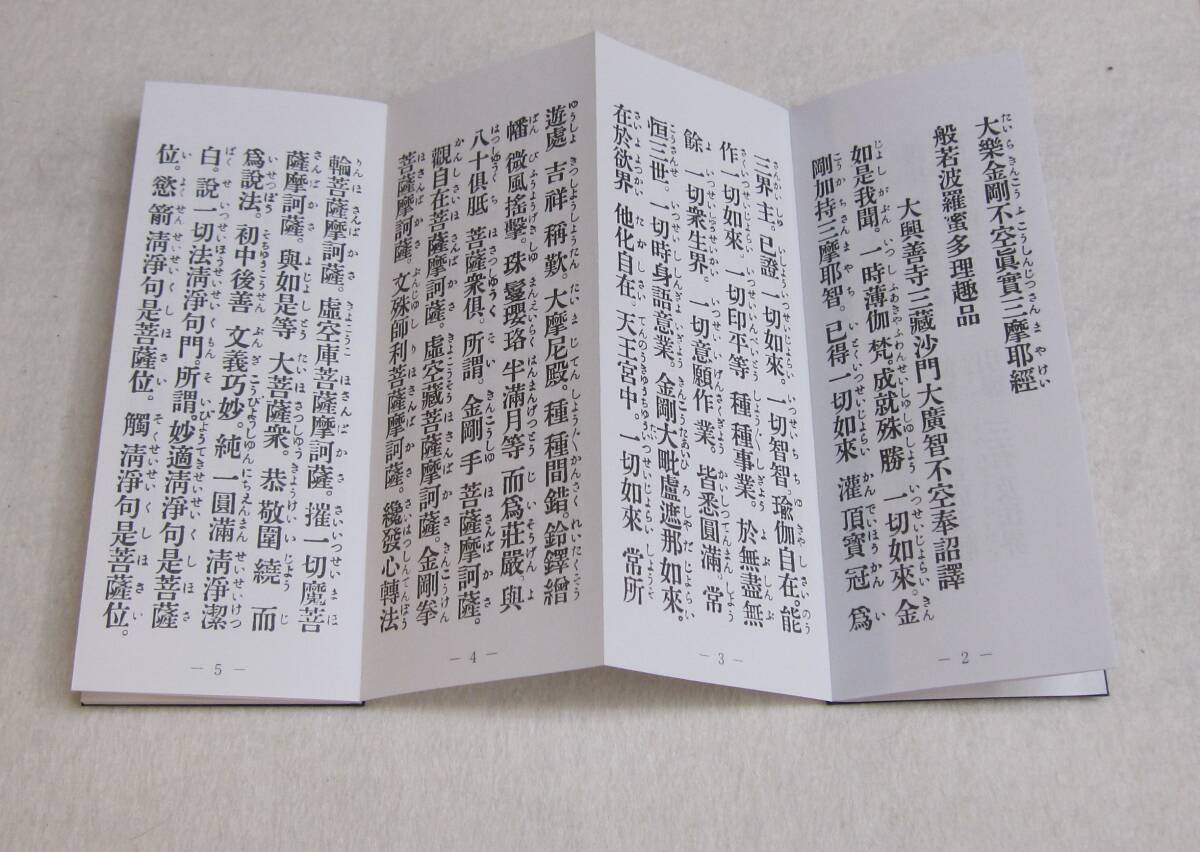 大樂金剛不空眞實三摩耶經
般若波羅蜜多理趣品
大興善寺三藏沙門大廣智不空奉詔譯
如是我聞。一時薄伽梵。成就殊勝一切如來。金
剛加持三摩耶智。已得一切如來灌頂寶冠爲
— 2 —
三界主。已證一切如來。一切智智。瑜伽自在。能
作一切如來。一切印平等種種事業。於無盡無
餘一切衆生界。一切意願作業。皆悉圓滿。常
恒三世。一切時身語意業。金剛大毗盧遮那如來。
在於欲界他化自在。天王宮中。一切如來常所
— 3 —
遊處吉祥稱歎。大摩尼殿。種種間錯。鈴鐸繒
幡微風搖擊。珠鬘瓔珞半滿月等而爲莊嚴。與
八十俱胝菩薩衆俱。所謂。金剛手菩薩摩訶薩。
觀自在菩薩摩訶薩。虛空藏菩薩摩訶薩。金剛拳
菩薩摩訶薩。文殊師利菩薩摩訶薩。纔發心轉法
— 4 —
輪菩薩摩訶薩。虛空庫菩薩摩訶薩。摧一切魔菩
薩摩訶薩。與如是等大菩薩衆。恭敬圍繞而
爲說法。初中後善文義巧妙。純一圓滿清淨潔
白。說一切法清淨句門。所謂。妙適清淨句是菩薩
位。慾箭清淨句是菩薩位。觸清淨句是菩薩位。
— 5 —